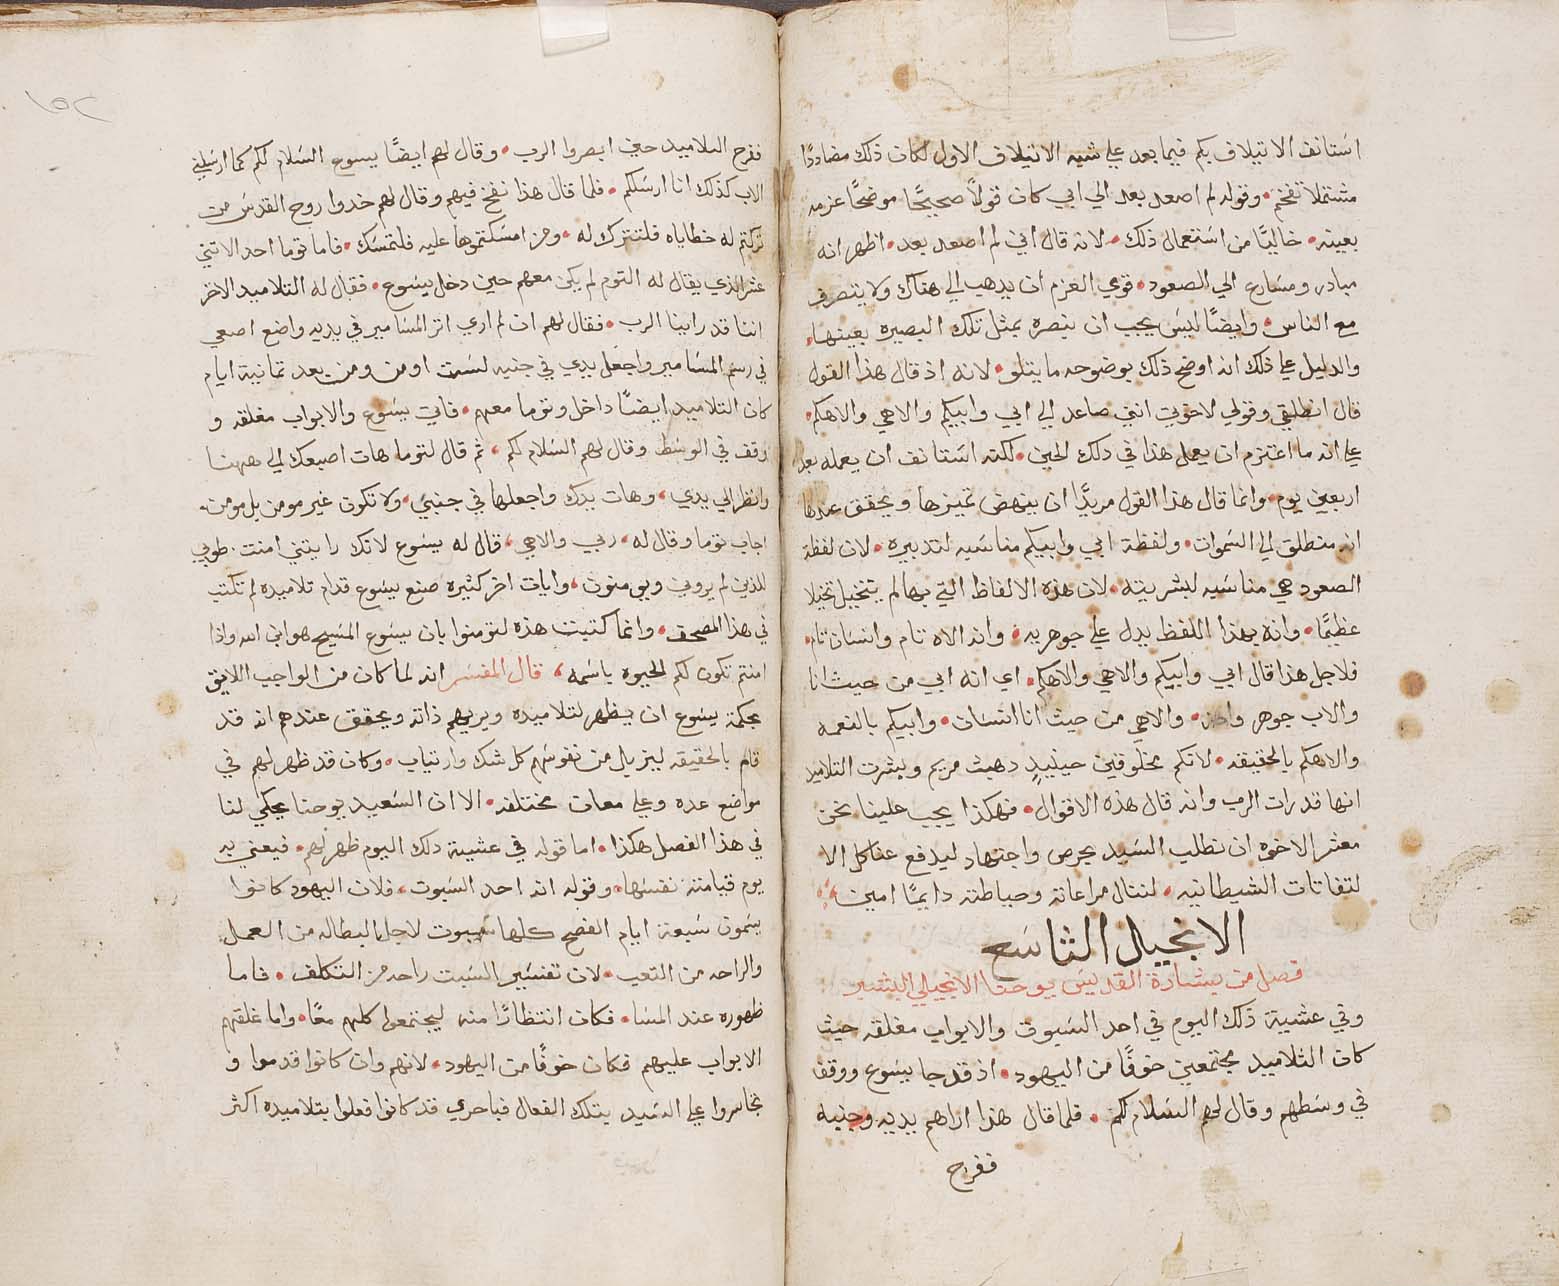 استانف الايتلاف بكم فيما بعد علي شبه الايتلاف الاول لكان ذلك مضاددًا
مشتملا تفخم • وقوله لم اصعد بعد الي ابي كان قولاً صحيحًا موضحًا عزمه
بعينه • خاليًا من استعمال ذلك • لانه قال اني لم اصعد بعد • اظهر انه
مبادر ومسارع الي الصعود • قوي العزم ان يدهب الي هناك ولا يتصرف
مع الناس • وايضًا ليس يجب ان ينصره بمثل تلك البصيره بعينها •
والدليل علي ذلك انه اوضح ذلك بوضوحه ما يتلو • لانه اذ قال هذا القول
قال انطلقي وقولي لاخوتي انني صاعد الي ابي وابيكم والاهي والاهكم •
علي انه ما اعتزم ان يعمل هذا في دلك الحين • لكنه استانف ان يعمله بعد
اربعين يوم • وانما قال هذا القول مريدًا ان ينهض تميزها ويحقق عندها
انه منطلق الي السموات • ولفظة ابي وابيكم مناسبه لتدبيره • لان لفظة
الصعود هي مناسبه لبشريته • لان هذه الالفاظ التي بها لم يتخيل تخيلا
عظيمًا • وانه بهذا اللفظ يدل علي جوهريه • وانه الاه تام وانسان تام •
فلاجل هذا قال ابي وابيكم والاهي والاهكم • اي انه ابي من حيث انا
والاب جوهر واحد • والاهي من حيث انا انسان • وابيكم بالنعمه
والاهكم بالحقيقه • لانكم مخلوقين حينيدٍ دهبت مريم وبشرت التلاميد
انها قد رات الرب وانه قال هذه الاقوال • فهكذا يجب علينا نحن
معشر الاخوه ان نطلب السيد بحرص واجتهاد ليدفع عنا كل الا
لتفاتات الشيطانيه • لننال مراعاته وحياطته دايمًا امين
الانجيل التاسع
فصل من بشارة القديس يوحنا الانجيلي البشير
وفي عشية ذلك اليوم في احد السبوت والابواب مغلقه حيث
كان التلاميد مجتمعين خوفًا من اليهود • اذ قد جا يسوع ووقف
في وسطهم وقال لهم السلام لكم • فلما قال هذا اراهم يديه وجنبه
ففرح
١٥٢
ففرح التلاميد حين ابصروا الرب • وقال لهم ايضًا يسوع السلام لكم كما ارسلني
الاب كذلك انا ارسلكم • فلما قال هذا نفخ فيهم وقال لهم خدوا روح القدس من
تركتم له خطاياه فلتترك له • ومن امسكتموها عليه فلتمسك • فاما توما احد الاثني
عشر الذي يقال له التوم لم يكن معهم حين دخل يسوع • فقال له التلاميد الاخر
اننا قد راينا الرب • فقال لهم ان لم اري اثر المسامير في يديه واضع اصبعي
في رسم المسامير واجعل يدي في جنبه لست اومن ومن بعد تمانية ايام
كان التلاميد ايضًا داخل وتوما معهم • فاتي يسوع والابواب مغلقه و
وقف في الوسط وقال لهم السلام لكم • ثم قال لتوما هات اصبعك الي ههنا
وانظر الي يدي • وهات يدك واجعلها في جنبي • ولا تكون غير مومن بل مومن •
اجاب توما وقال له • ربي والاهي • قال له يسوع لانك رايتني امنت • طوبي
للذين لم يروني ويومنون • وايات اخر كثيره صنع يسوع قدام تلاميده لم تكتب
في هذا المصحف • وانما كتبت هذه لتومنوا بان يسوع المسيح هو ابن الله واذا
امنتم تكون لكم الحيوه باسمه • قال المفسر انه لما كان من الواجب اللايق
بحكمة يسوع ان يظهر لتلاميده ويريهم ذاته ويحقق عندهم انه قد
قام بالحقيقه ليزيل من نفوسهم كل شك وارتياب • وكان قد ظهر لهم في
مواضع عده وعلي معان مختلفه • الا ان السعيد يوحنا يحكي لنا
في هذا الفصل هكذا • اما قوله في عشية دلك اليوم ظهر لهم • فيعني به
يوم قيامته نفسها • وقوله انه احد السبوت • فلان اليهود كانوا
يسمون سبعة ايام الفصح كلها سبوت لاجل البطاله من العمل
والراحه من التعب • لان تفسير السبت راحه من التكلف • فاما
ظهوره عند المسا • فكان انتظارًا منه ليجتمعوا كلهم معًا • واما غلقهم
الابواب عليهم فكان خوفًا من اليهود • لانهم وان كانوا قدموا و
تجاسروا علي السيد بتلك الفعال فباحري قد كانوا فعلوا بتلاميده اكثر